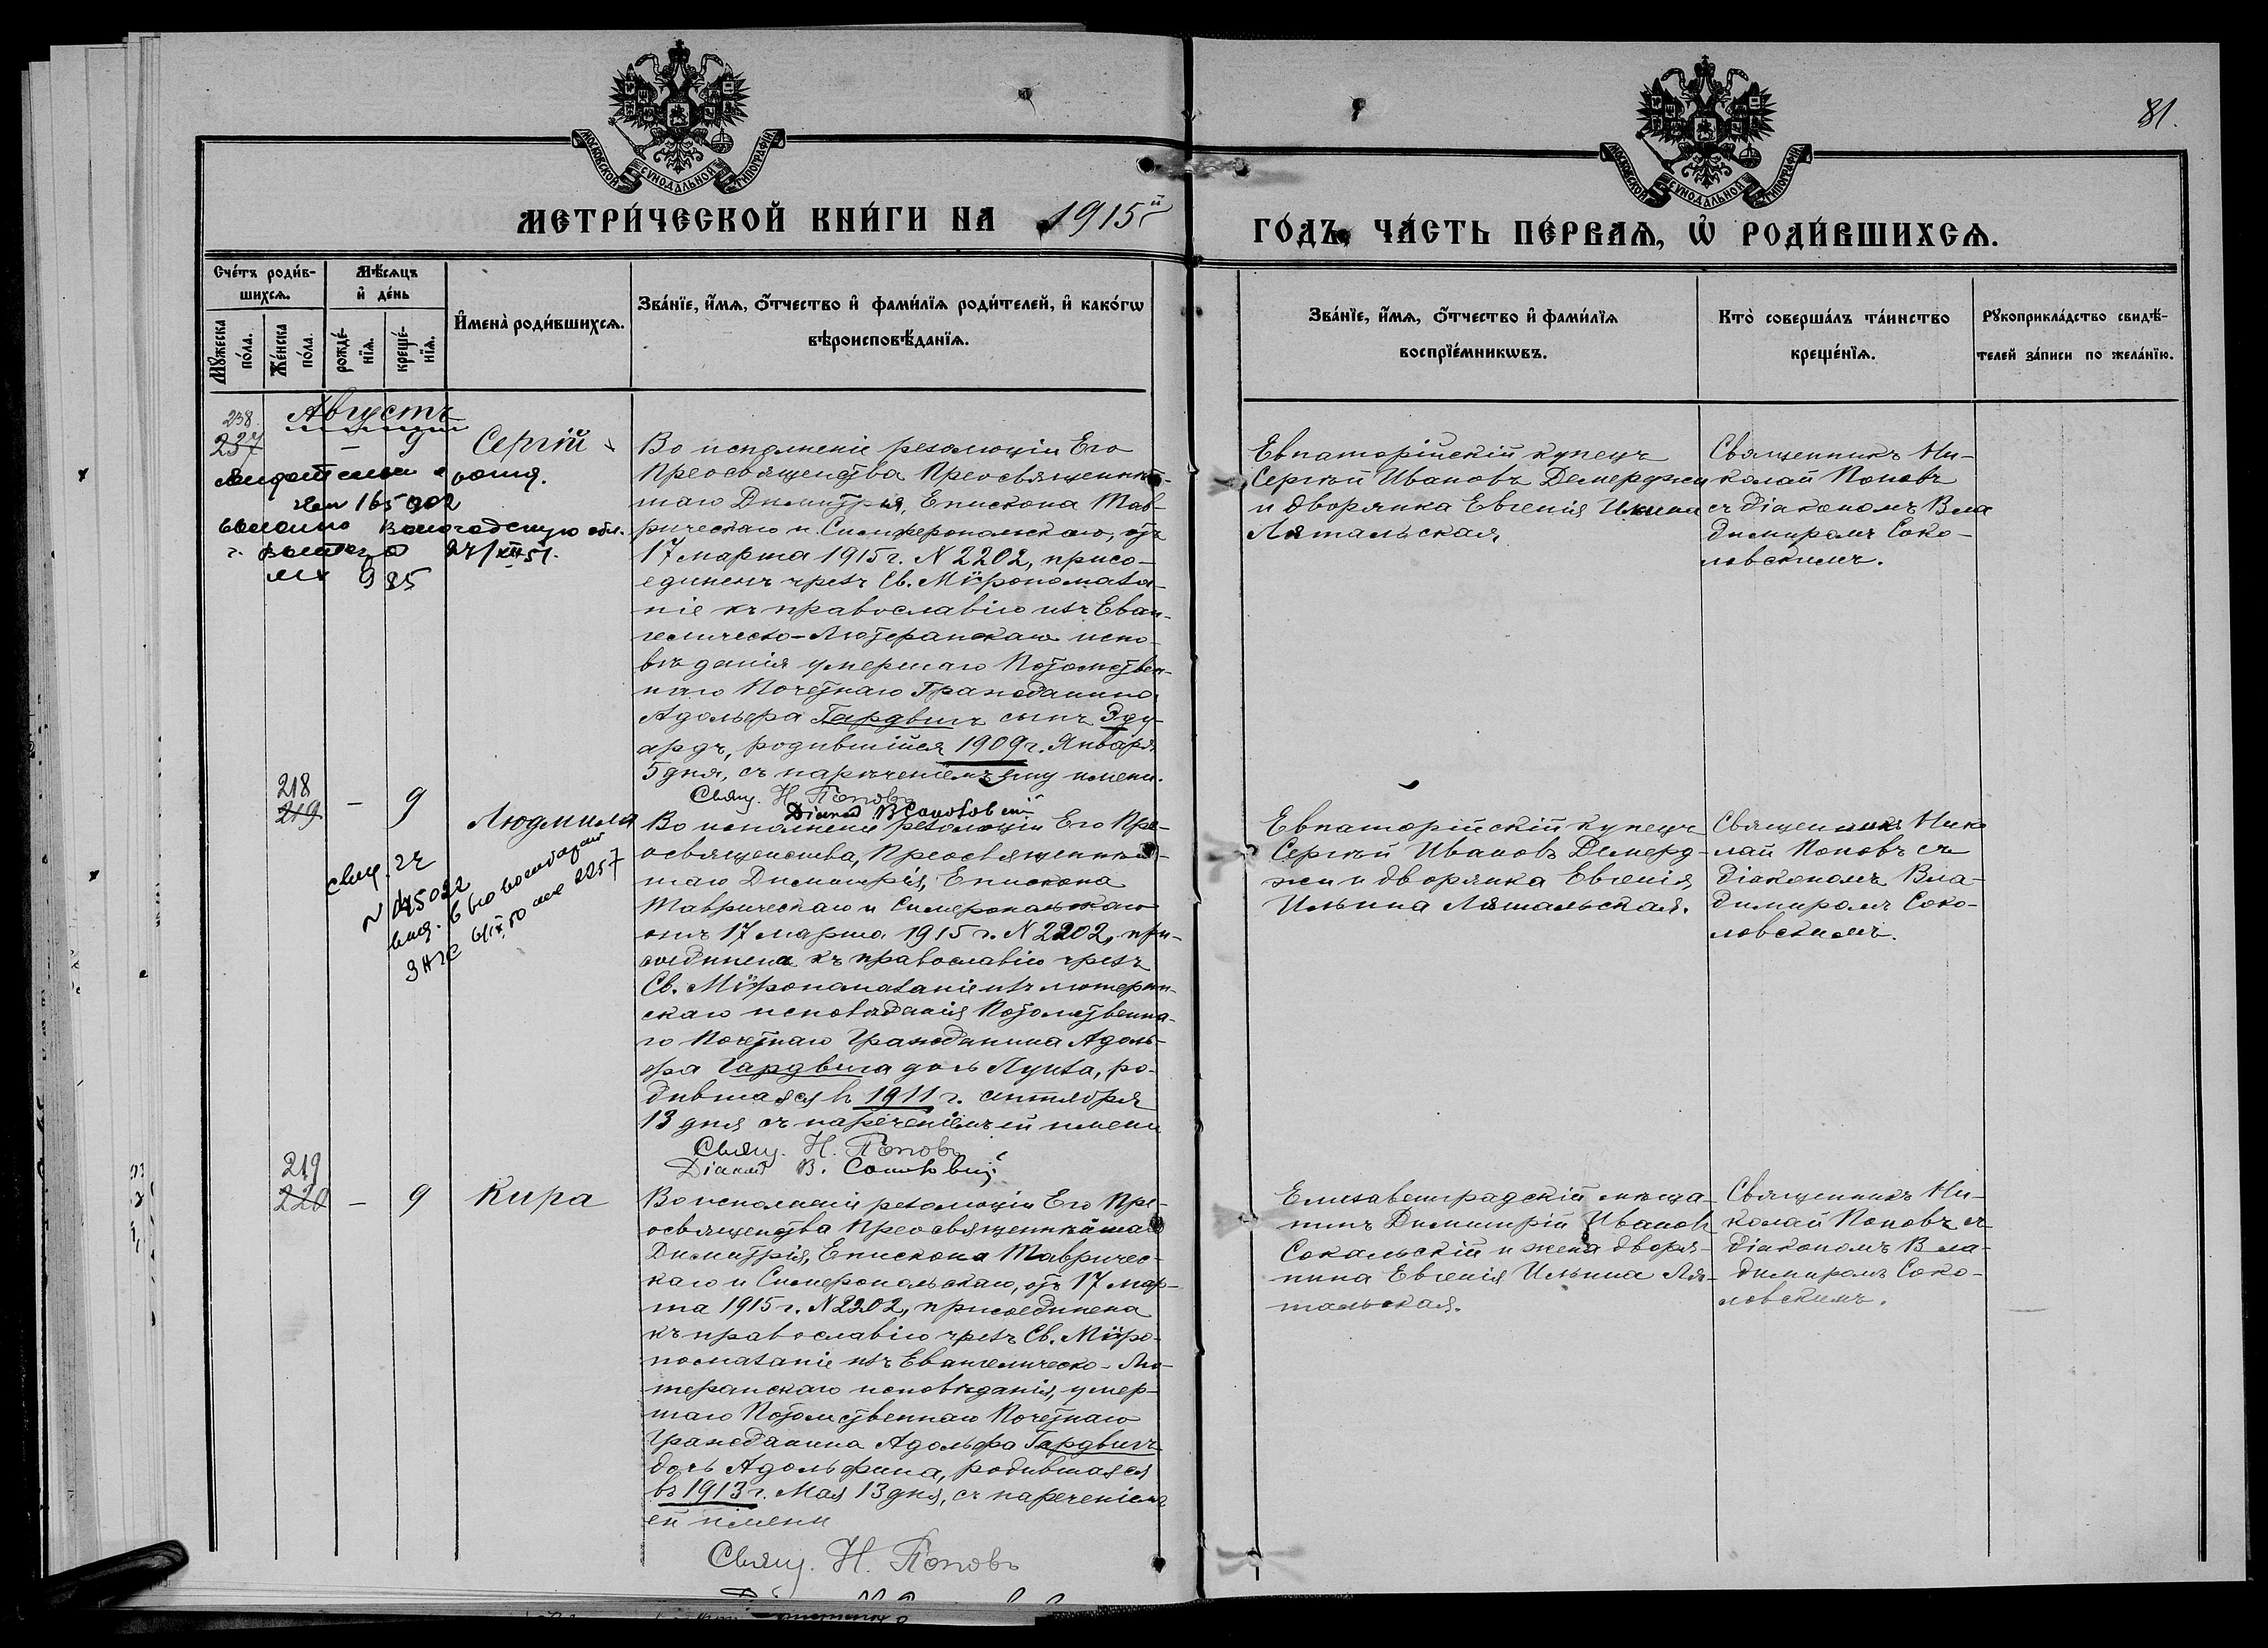 81.
МОСКОВСКОЙ СѴНОДАЛЬНОЙ ТИПОГРАФІИ
МОСКОВСКОЙ СѴНОДАЛЬНОЙ ТИПОГРАФІИ
МЕТРИ́ЧЕСКОЙ КНИ́ГИ НА 1915й
ГО́ДЪ, ЧА́СТЬ ПЕ́РВАѦ, Ѡ҆ РОДИ́ВШИХСѦ.
Сче́тъ роди́в-
шихсѧ.
Мꙋ́жеска по́ла.
Же́нска по́ла.
Мѣ́сѧцъ
и҆ де́нь
рожде́-
нїѧ.
креще́-
нїѧ.
И҆мена̀ роди́вшихсѧ.
Зва́нїе, и҆́мѧ, ѻ҆́тчество и҆ фами́лїѧ роди́телей, и҆ како́гѡ
вѣроисповѣ́данїѧ.
Зва́нїе, и҆́мѧ, ѻ҆́тчество и҆ фами́лїѧ
воспрїе́мникѡвъ.
Кто̀ соверша́лъ та́инство
креще́нїѧ.
Рꙋкоприкла́дство свидѣ́-
телей за́писи по жела́нїю.
Августъ
238.
237 — 9 Сергій
165902
Вологодскую обл.
24/XII 51.
985
Во исполненіе резолюціи Его
Преосвященства Преосвященнѣй-
шаго Димитрія, Епископа Тав-
рическаго и Симферопольскаго, отъ
17 марта 1915 г. N 2202, присо-
единенъ чрезъ Св. Мѵропомаза-
ніе къ православію изъ Еван-
гелическо-Лютеранскаго испо-
вѣданія умершаго Потомствен-
наго Почетнаго Гражданина
Адольфа Гардвигъ сынъ Эду-
ардъ, родившійся 1909 г. Января
5 дня, съ нареченіемъ ему имени.
Свящ. Н. Поповъ
Евпаторійскій купецъ
Сергѣй Ивановъ Демерджи
и дворянка Евгенія Ильина
Лятальская
Священникъ Ни-
колай Поповъ
съ діакономъ Вла
димиромъ Соко-
ловскимъ.
218
219 — 9 Людмила
свид.
Во исполненіе резолюціи Его Пре-
освященства, Преосвященнѣй-
шаго Димитрія, Епископа
Таврическаго и Симферопольскаго
отъ 17 марта 1915 г. N 2202, при-
соединена къ православію чрезъ
Св. Мѵропомазаніе изъ лютеран-
скаго исповѣданія Потомственна-
го Почетнаго Гражданина Адоль-
фа Гардвига дочь Луиза, ро-
дившаяся въ 1911 г. сентября
13 дня съ нареченіемъ ей имени
Свящ. Н. Поповъ
Евпаторійскій купецъ
Сергѣй Ивановъ Демерд-
жи и дворянка Евгенія
Ильина Лятальская.
Священникъ Нико
лай Поповъ съ
діакономъ Вла-
димиромъ Соко-
ловскимъ.
219
220 — 9 Кира
Во исполненіе резолюціи Его Пре-
освященства Преосвященнѣйшаго
Димитрія, Епископа Тавричес-
каго и Симферопольскаго, отъ 17 мар-
та 1915 г. N 2202, присоединена
къ православію чрезъ Св. Мѵро-
помазаніе изъ Евангелическо-Лю-
теранскаго исповѣданія, умер-
шаго Потомственнаго Почетнаго
Гражданина Адольфа Гардвигъ
дочь Адольфина, родившаяся
въ 1913 г. Мая 13 дня, съ нареченіемъ
ей имени
Свящ. Н. Поповъ
Елизаветградскій мѣща-
нинъ Димитрій Иванов
Сокальскій и жена дворя-
нина Евгенія Ильина Ля-
тальская.
Священникъ Ни-
колай Поповъ съ
діакономъ Вла-
димиромъ Соко-
ловскимъ.